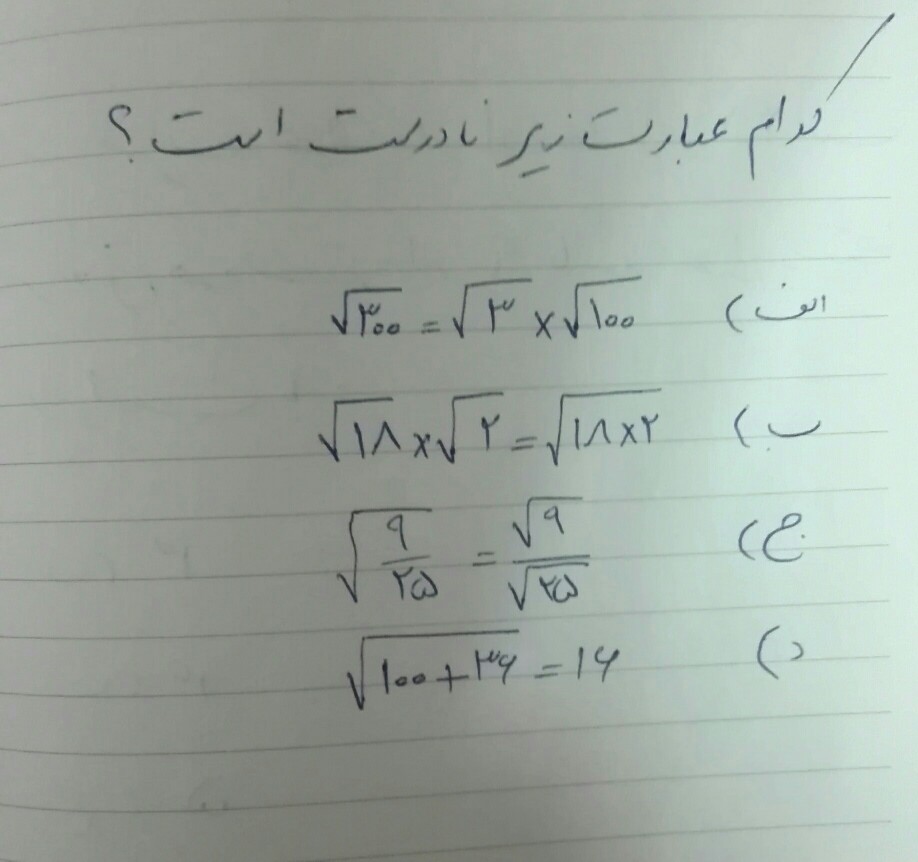 کدام عبارت زیر نادرست است؟
الف) √۳۰۰ = √۳ × √۱۰۰
ب) √۱۸ × √۲ = √۱۸×۲
ج) √۹/۲۵ = √۹/√۲۵
د) √۱۰۰+۳۶ = ۱۶